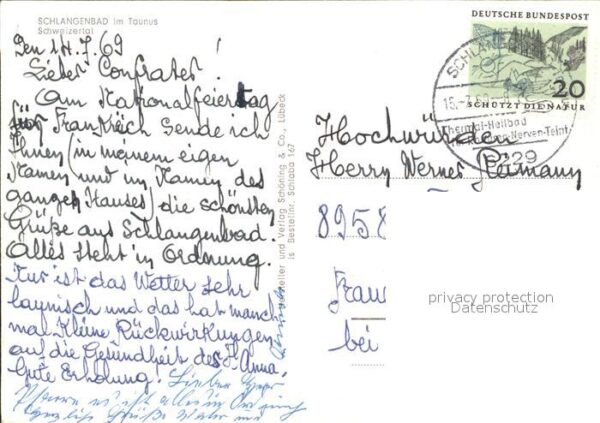 SCHLANGENBAD im Taunus
Schweizertal
Den 14.7.69
Lieber Confrater!
Am Nationalfeiertag
für Frankreich sende ich
Ihnen (in meinem eigen
Namen und im Namen des
ganzen Hauses) die schönsten
Grüße aus Schlangenbad.
Alles steht in Ordnung.
Nur ist das Wetter sehr
launisch und das hat manch
mal kleine Rückwirkungen
auf die Gesundheit des H. Anna.
Gute Erholung.
Lieber Herr
Pfarrer es ist alles in
herzliche Grüße
Hersteller und Verlag Schöning & Co., Lübeck
Bestellnr. Schlaba 167
DEUTSCHE BUNDESPOST
20
SCHÜTZT DIE NATUR
SCHLANGENBAD
15.-7.69
Thermal-Heilbad
Nerven-Teint
6229
Hochwürden
Herrn Werner
8958
Frau
bei
privacy protection
Datenschutz